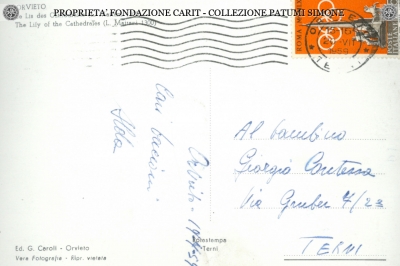 PROPRIETA' FONDAZIONE CARIT - COLLEZIONE PATUMI SIMONE
ORVIETO
Le Lis des
The Lily of the Cathedrales (L.
ROMA
Orvieto
Cari bacioni
Ilda
Al bambino
Giorgio Contessa
Via Gruber 7/23
TERNI
Ed. G. Caroli - Orvieto
Vera Fotografia - Ripr. vietata
Terni